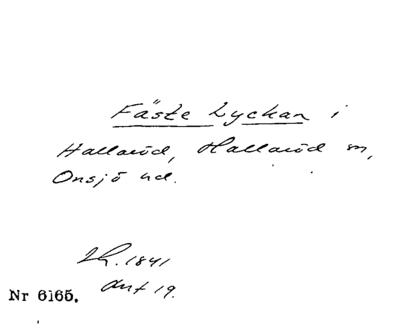 Fäste Lyckan i
Hallaröd, Hallaröd sn,
Onsjö hd.
Lh. 1841
Akt 19.
Nr 6165.